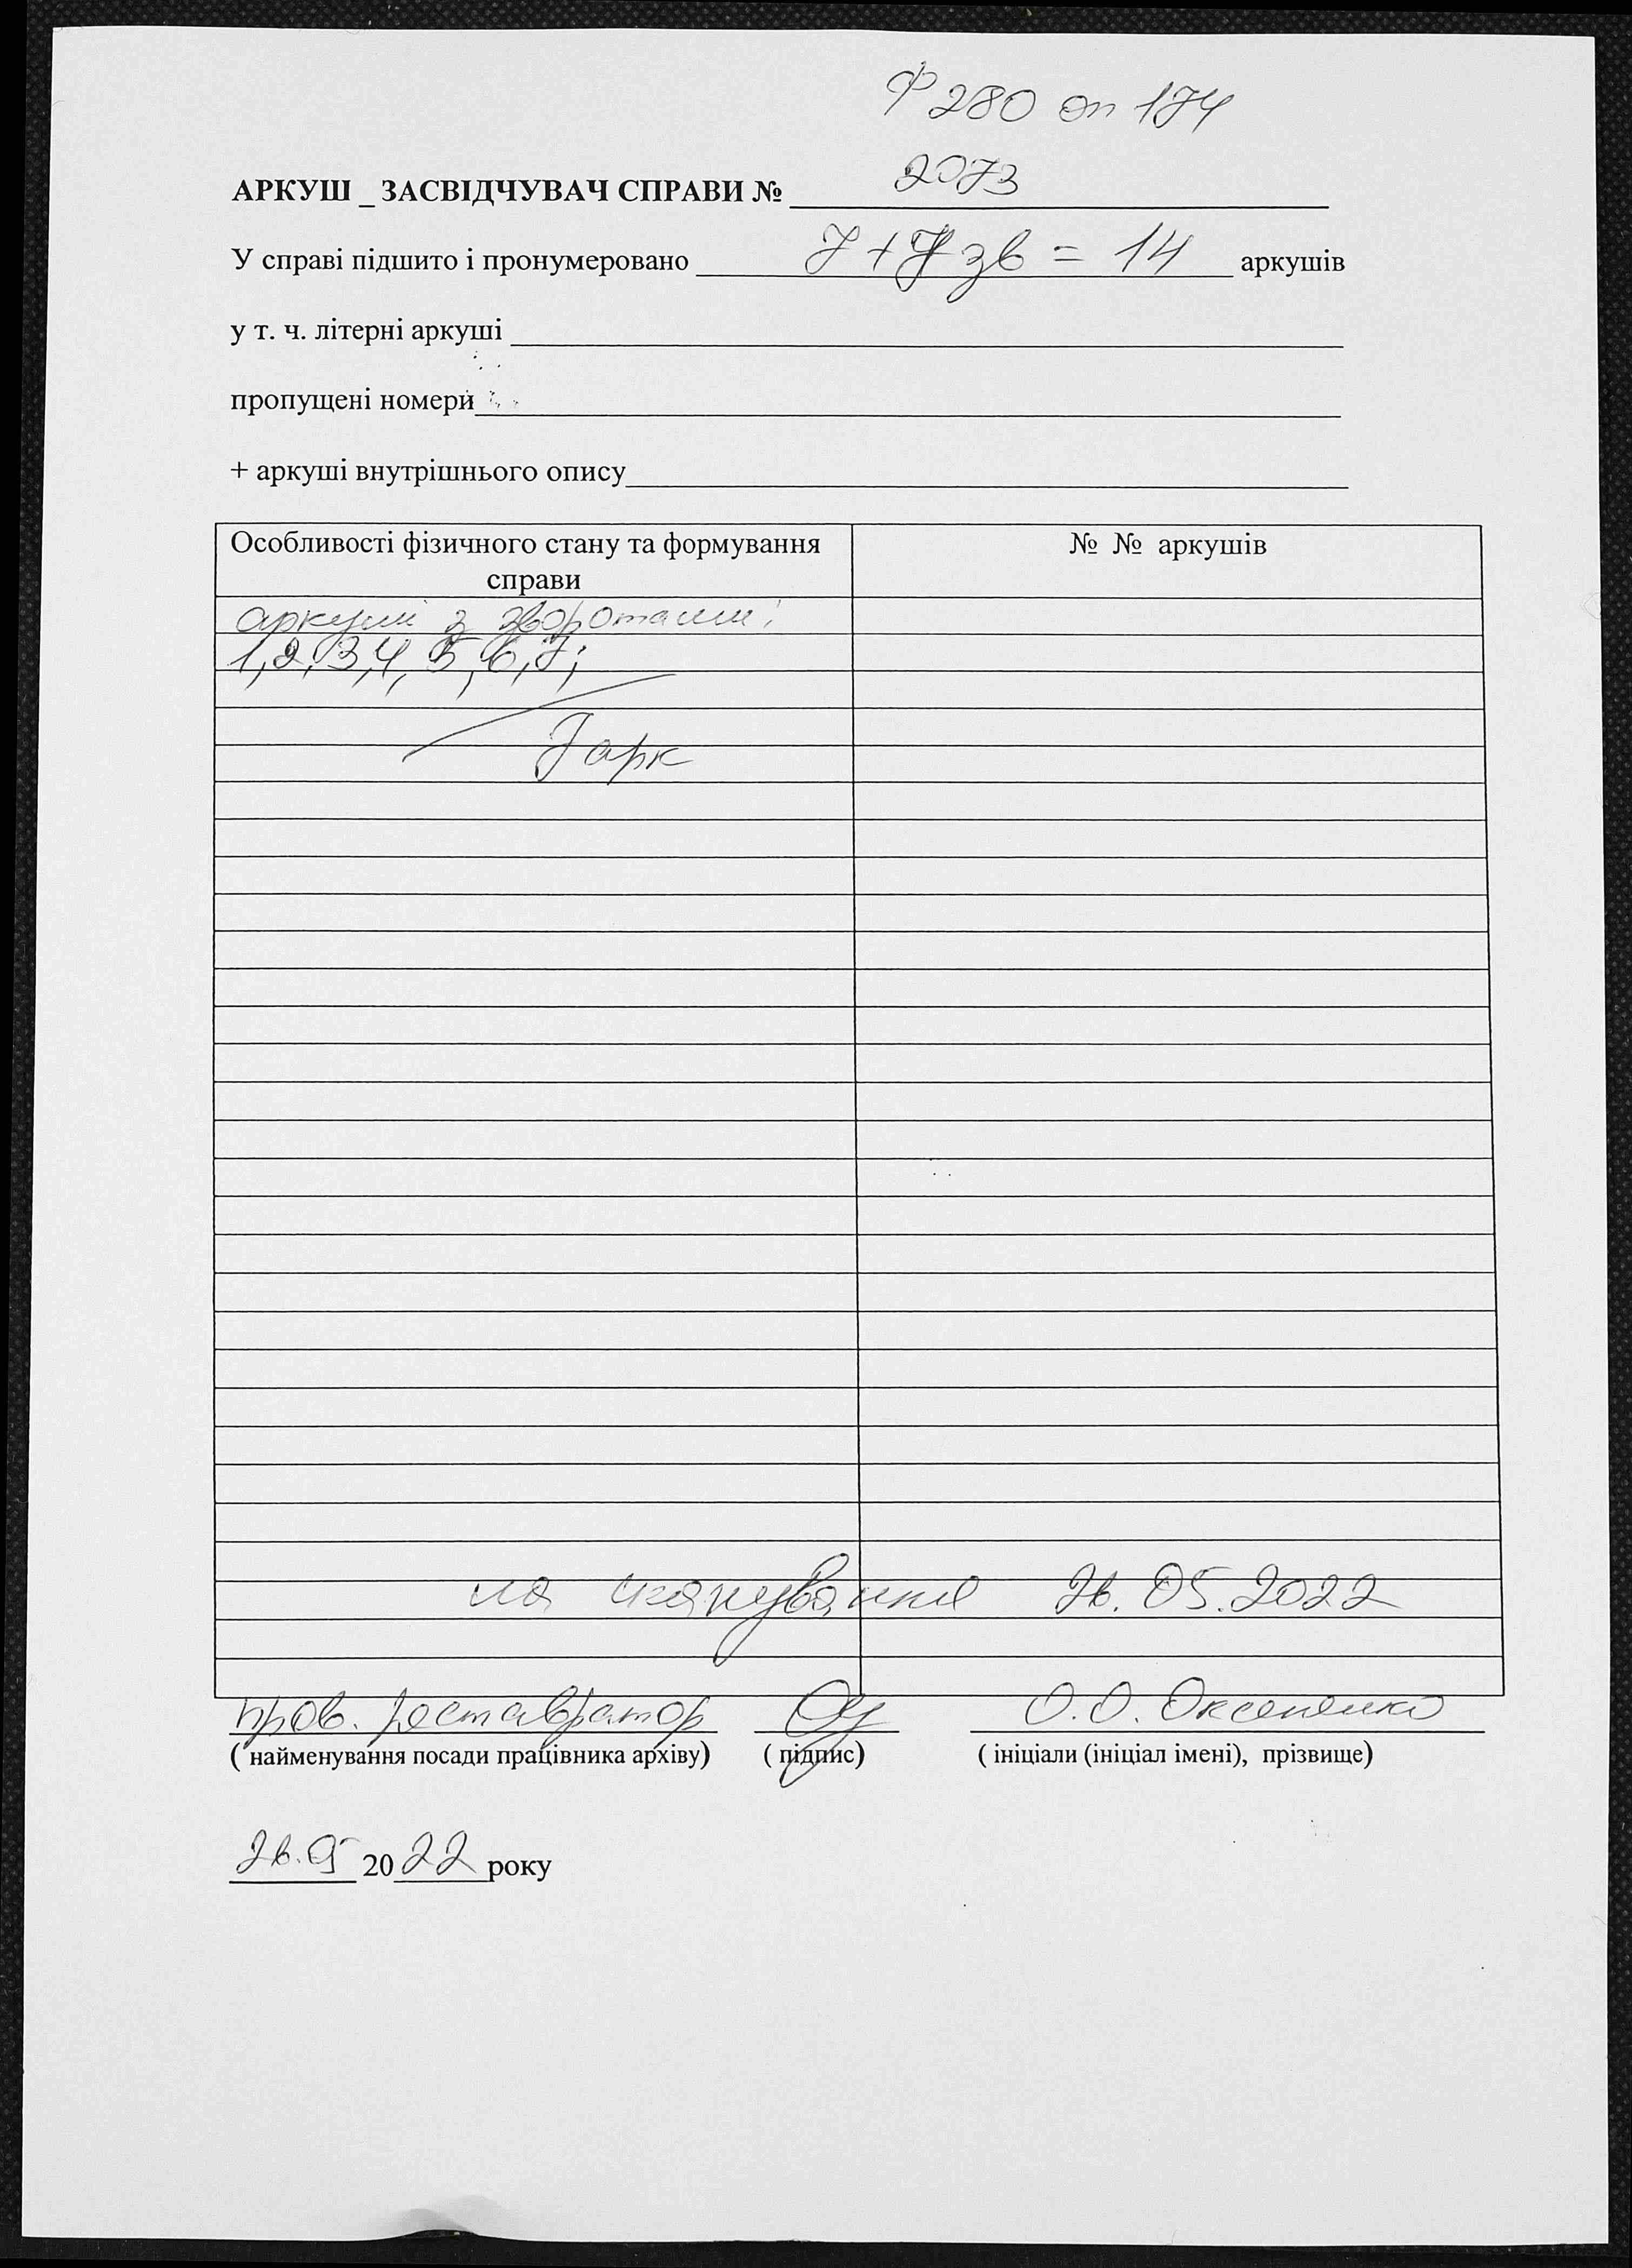 Ф 280 оп 174
АРКУШ _ ЗАСВІДЧУВАЧ СПРАВИ № 2073
У справі підшито і пронумеровано 7+7 зв = 14 аркушів
у т. ч. літерні аркуші
пропущені номери
+ аркуші внутрішнього опису
Особливості фізичного стану та формування справи № № аркушів
аркуші з зворотами:
1, 2, 3, 4, 5, 6, 7;
7 арк
на сканування 26.05.2022
пров. реставратор О.О. Оксененко
( найменування посади працівника архіву) ( підпис) ( ініціали (ініціал імені), прізвище)
26.05 2022 року